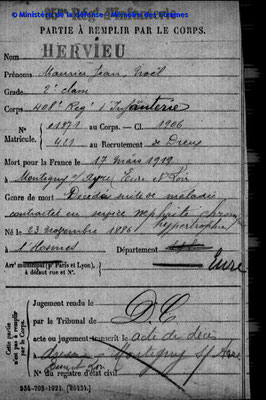 © Ministère de la défense - Mémoire des hommes
PARTIE À REMPLIR PAR LE CORPS.
Nom HERVIEU
Prénoms Maurice Jean Noël
Grade 2e classe
Corps 408e Reg t Infanterie
N° Matricule. 01871 au Corps. — Cl. 1906
421 au Recrutement de Dreux
Mort pour la France le 17 mars 1919
à Montigny s/ Avre, Eure et Loir
Genre de mort Décédé suite de maladie
contractée en service néphrite
hypertrophie
Né le 23 novembre 1886
à Département Eure
Arr¹ municipal (pʳ Paris et Lyon), à défaut rue et N°.
Cette partie n'est pas à remplir par le Corps.
Jugement rendu le
par le Tribunal de D. C
acte ou jugement transcrit le acte de décès
à Montigny s/ Avre
Eure et Loir
N° du registre d'état civil
534-708-1921. [26434.]